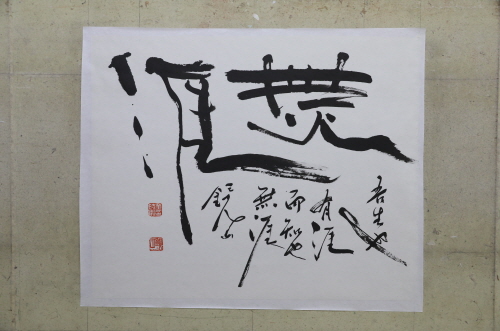 無涯
吾生也
有涯
而知也
無涯